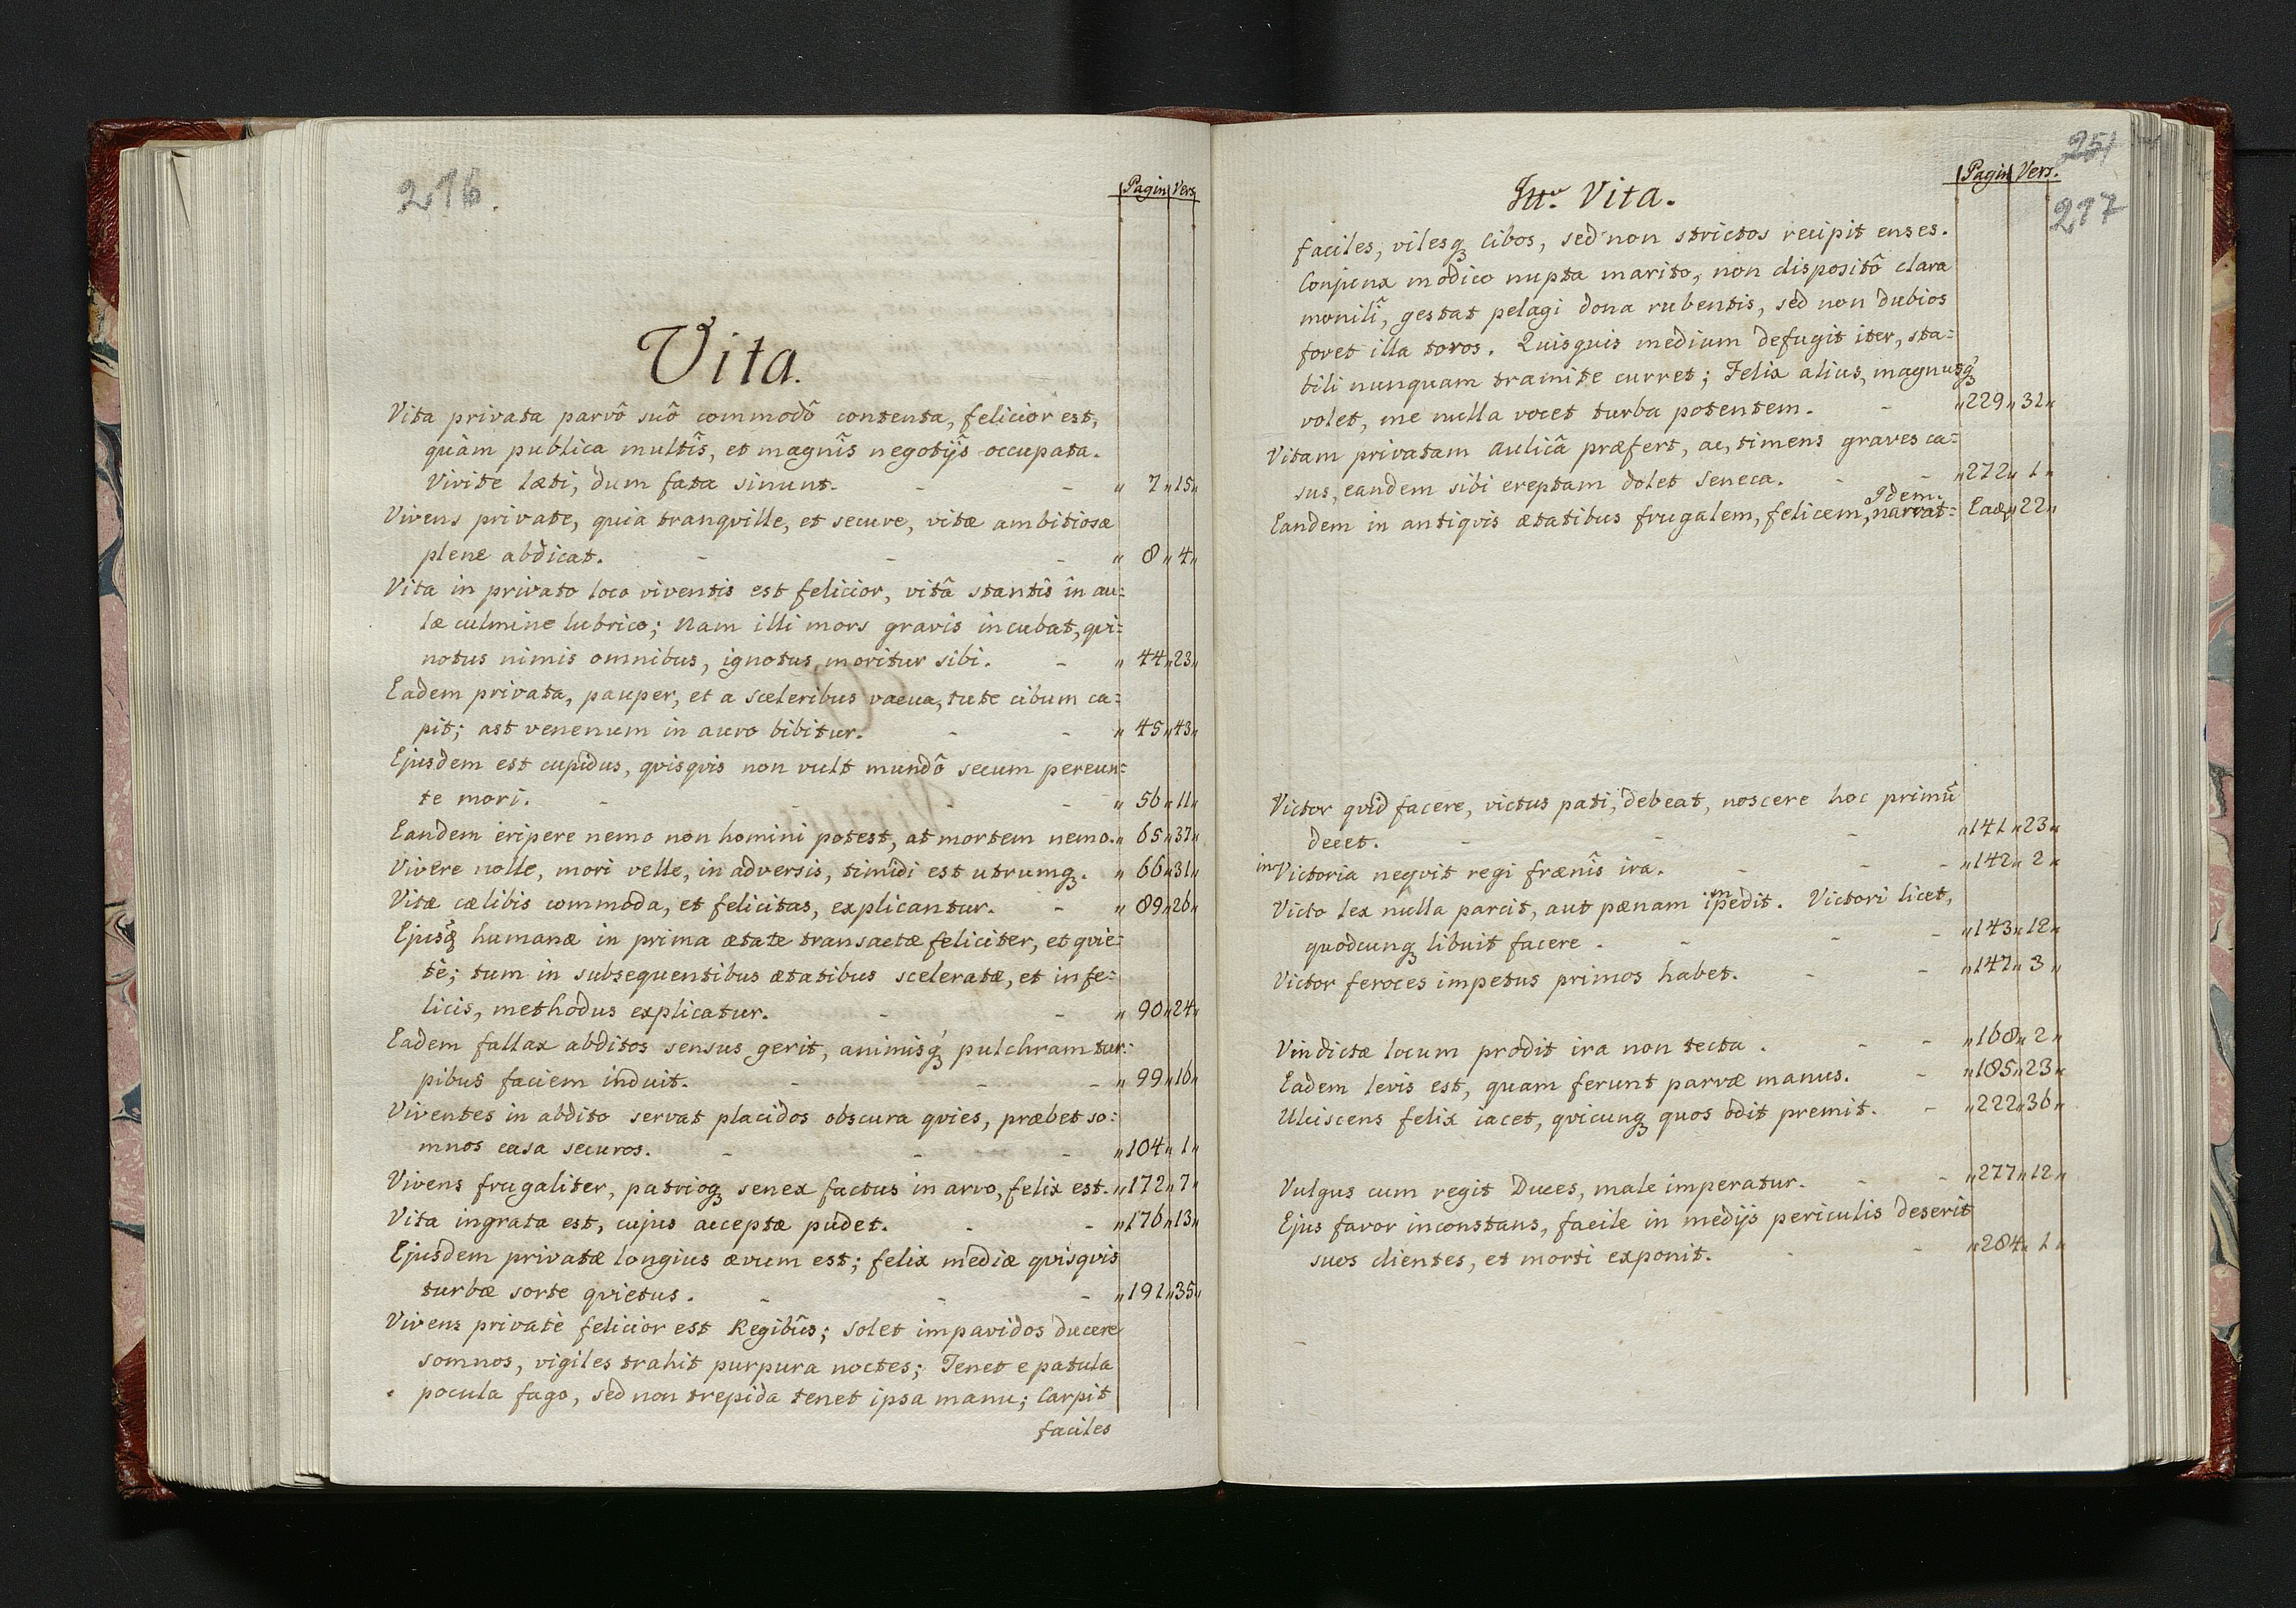 216.
Pagin Vers
Vita.
Vita privata parvô suô commodô contenta, felicior est,
quàm publica multîs, et magnîs negotijs occupata.
Vivite læti, dum fata sinunt. - - „ 7 „ 15 „
Vivens private, quia tranqville, et secure, vitæ ambitiosæ
plene abdicat. - - - „ 8 „ 4 „
Vita in privato loco viventis est felicior, vitâ stantis in au=
læ culmine lubrico; Nam illi mors gravis incubat, qvi=
notus nimis omnibus, ignotus moritur sibi. - „ 44 „ 23 „
Eadem privata, pauper, et a sceleribus vacua, tute cibum ca=
pit; ast venenum in auro bibitur. - - „ 45 „ 43 „
Ejusdem est cupidus, qvisqvis non vult mundô secum pereun=
te mori. - - - - „ 56 „ 11 „
Eandem eripere nemo non homini potest, at mortem nemo. „ 65 „ 37 „
Vivere nolle, mori velle, in adversis, timidi est utrumqꝫ. „ 66 „ 31 „
Vitæ cælibis commoda, et felicitas, explicantur. - „ 89 „ 26 „
Ejusqꝫ humanæ in prima ætate transactæ feliciter, et qvie=
tè; tum in subsequentibus ætatibus sceleratæ, et infe=
licis, methodus explicatur. - - „ 90 „ 24 „
Eadem fallax abditos sensus gerit, animisqꝫ pulchram tur=
pibus faciem induit. - - - „ 99 „ 16 „
Viventes in abdito servat placidos obscura qvies, præbet so=
mnos casa securos. - - - „ 104 „ 1 „
Vivens frugaliter, patrioqꝫ senex factus in arvo, felix est. „ 172 „ 7 „
Vita ingrata est, cujus acceptæ pudet. - - „ 176 „ 13 „
Ejusdem privatæ longius ævum est; felix mediæ qvisqvis
turbæ sorte qvietus. - - - „ 191 „ 35 „
Vivens privatè felicior est Regibûs; solet impavidos ducere
somnos, vigiles trahit purpura noctes; Tenet e patula
pocula fago, sed non trepida tenet ipsa manu; Carpit
faciles
251
217
Pagin Vers.
Vita.
faciles, vilesqꝫ cibos, sed non strictos recipit enses.
Conjunx modico nupta marito, non dispositô clara
monilî, gestat pelagi dona rubentis, sed non dubios
fovet illa toros. Quisquis medium defugit iter, sta=
bili nunquam tramite curret; Felix alius, magnusqꝫ
volet, me nulla vocet turba potentem. - „ 229 „ 31 „
Vitam privatam aulicâ præfert, ac, timens graves ca=
sus, eandem sibi ereptam dolet Seneca. - - „ 272 „ 1 „
Eandem in antiqvis ætatibus frugalem, felicem, Idem narrat= Eadꝫ „ 22 „
Victor qvid facere, victus pati, debeat, noscere hoc primũ
decet. - - - „ 141 „ 23 „
inVictoria neqvit regi frænîs ira. - - - „ 142 „ 2 „
Victo lex nulla parcit, aut pænam impedit. Victori licet,
quodcunqꝫ libuit facere. - - - „ 143 „ 12 „
Victor feroces impetus primos habet. - - „ 147 „ 3 „
Vindictæ locum prodit ira non tecta. - - „ 168 „ 2 „
Eadem levis est, quam ferunt parvæ manus. - „ 185 „ 23 „
Ulciscens felix iacet, qvicunqꝫ quos odit premit. - „ 222 „ 36 „
Vulgus cum regit Duces, male imperatur. - - „ 277 „ 12 „
Ejus favor inconstans, facile in medijs periculis deserit
suos clientes, et morti exponit. - - „ 284 „ 1 „